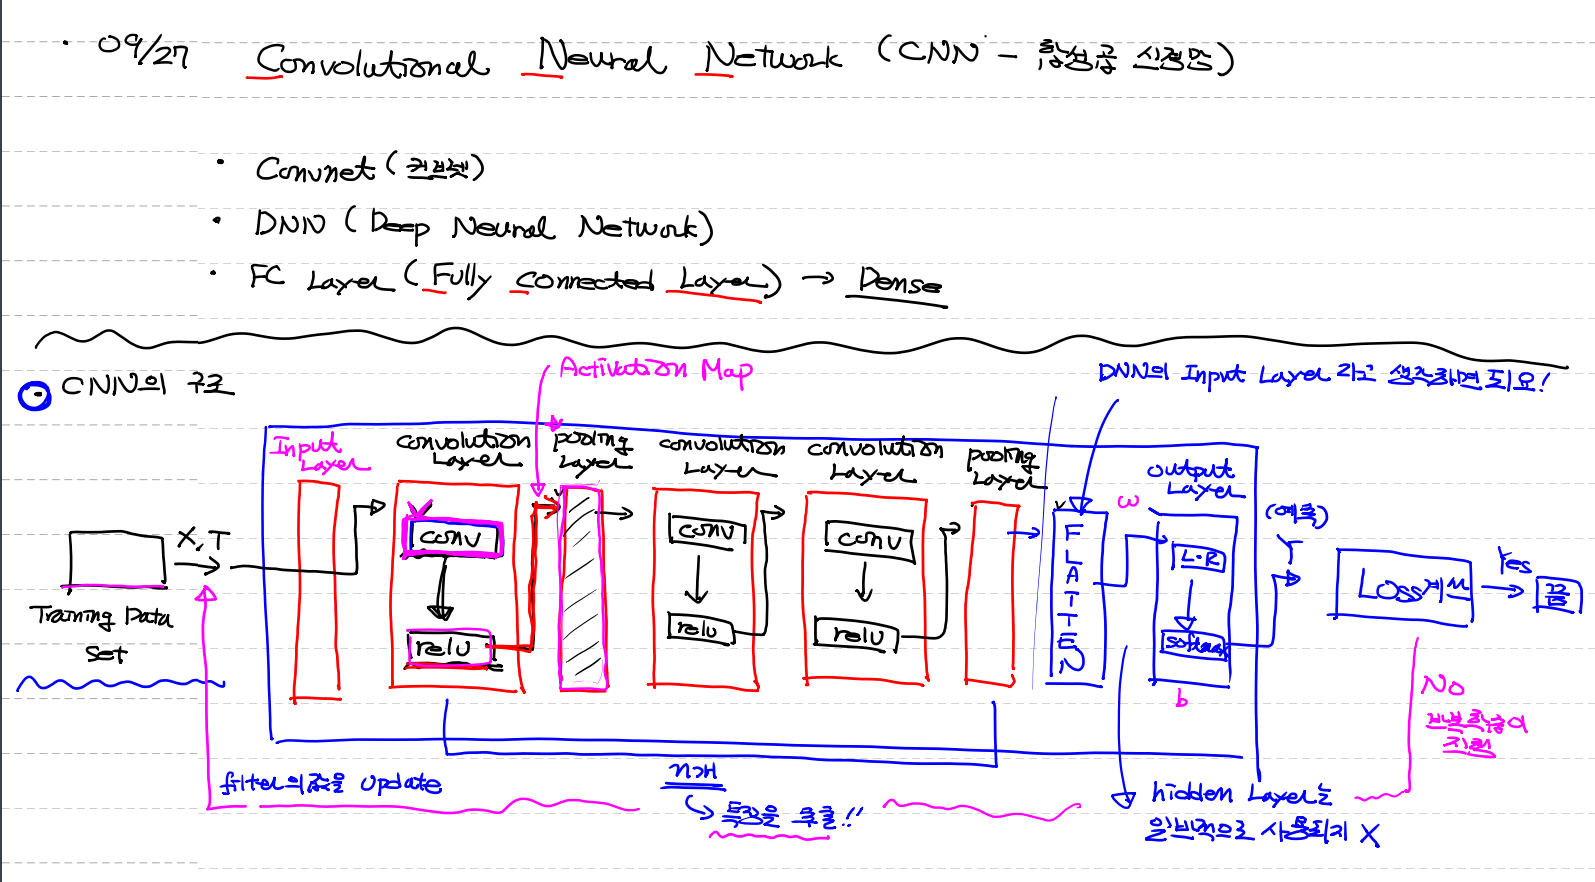 · 09/27 Convolutional Neural Network (CNN - 합성곱 신경망)
· Convnet (컨브넷)
· DNN (Deep Neural Network)
· FC Layer (Fully Connected Layer) → Dense
Activation Map
DNN의 Input Layer 라고 생각하면 되요!
CNN의 구조
Input Layer
convolution Layer
pooling Layer
convolution Layer
convolution Layer
pooling Layer
output Layer
X, T
Training Data Set
conv
relu
conv
relu
conv
relu
FLATTEN
w
L·R
softmax
b
(예측)
Y
Loss계산
Yes
끝
No
반복학습이
진행
filter의 값을 Update
n개
특징을 추출!!
hidden Layer는
일반적으로 사용되지 X